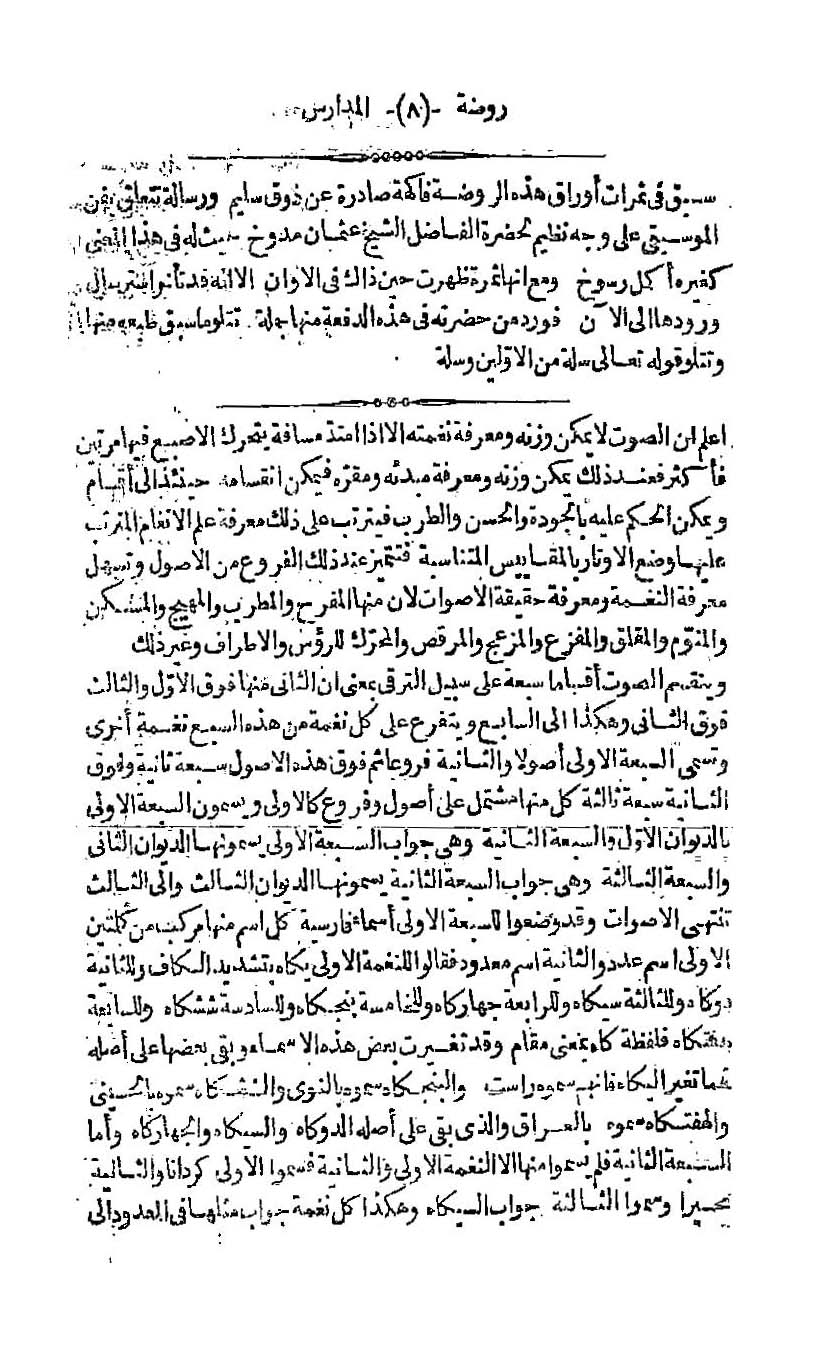 روضة -(٨)- المدارس
سبق فى ثمرات أوراق هذه الروضة فاكهة صادرة عن ذوق سليم ورسالة تتعلق بفن
الموسيقى على وجه نظيم لحضرة الفاضل الشيخ عثمان مدوخ حيث له فى هذا المعنى
كغيره أكمل رسوخ ومع انها ثمرة ظهرت حين ذاك فى الاوان الا انه قد تأنوا
ورودها الى الآن فورد من حضرته فى هذه الدفعة منها جملة تتلو ما سبق طبعه منها
وتتلو قوله تعالى سلة من الاوّلين وسلة
اعلم ان الصوت لا يمكن وزنه ومعرفة نغمته الا اذا امتدّ مسافة يتحرك الاصبع فيها مرتين
فأكثر فعند ذلك يمكن وزنه ومعرفة مبدئه ومقرّه فيمكن انقسامه حينئذ الى أقسام
ويمكن الحكم عليه بالجودة والحسن والطرب فيترتب على ذلك معرفة علم الانغام المترتب
عليها وضع الاوتار بالمقاييس المتناسبة فتتميز عند ذلك الفروع من الاصول وتسهل
معرفة النغمة ومعرفة حقيقة الاصوات لان منها المفرح والمطرب والمهيج والمسكن
والمنوّم والمقلق والمفزع والمزعج والمرقص والمحرّك للرؤس والاطراف وغير ذلك
وينقسم الصوت أقساما سبعة على سبيل الترقى بمعنى ان الثانى منها فوق الاوّل والثالث
فوق الثانى وهكذا الى السابع ويتفرع على كل نغمة من هذه السبع نغمة أخرى
وتسمى السبعة الاولى أصولا والثانية فروعا ثم فوق هذه الاصول سبعة ثانية وفوق
الثانية سبعة ثالثة كل منها مشتمل على أصول وفروع كالاولى ويسمون السبعة الاولى
بالديوان الاوّل والسبعة الثانية وهى جواب السبعة الاولى يسمونها الديوان الثانى
والسبعة الثالثة وهى جواب السبعة الثانية يسمونها الديوان الثالث والى الثالث
تنتهى الاصوات وقد وضعوا للسبعة الاولى أسماء فارسية كل اسم منها مركب من كلمتين
الاولى اسم عدد والثانية اسم معدود فقالوا للنغمة الاولى يكاه بتشديد الكاف وللثانية
دوكاه وللثالثة سيكاه وللرابعة جهاركاه وللخامسة بنجكاه وللسادسة ششكاه وللسابعة
هفتكاه فلفظة كاه بمعنى مقام وقد تغيرت بعض هذه الاسماء وبقى بعضها على أصله
فما تغير اليكاه فانهم سموه راست والبنجكاه سموه بالنوى والششكاه سموه بالحسينى
والهفتكاه سموه بالعراق والذى بقى على أصله الدوكاه والسيكاه والجهاركاه وأما
السبعة الثانية فلم يسموا منها الا النغمة الاولى والثانية فسموا الاولى كردانا والثانية
محيرا وسموا الثالثة جواب السيكاه وهكذا كل نغمة جواب مثلها فى العدود الى